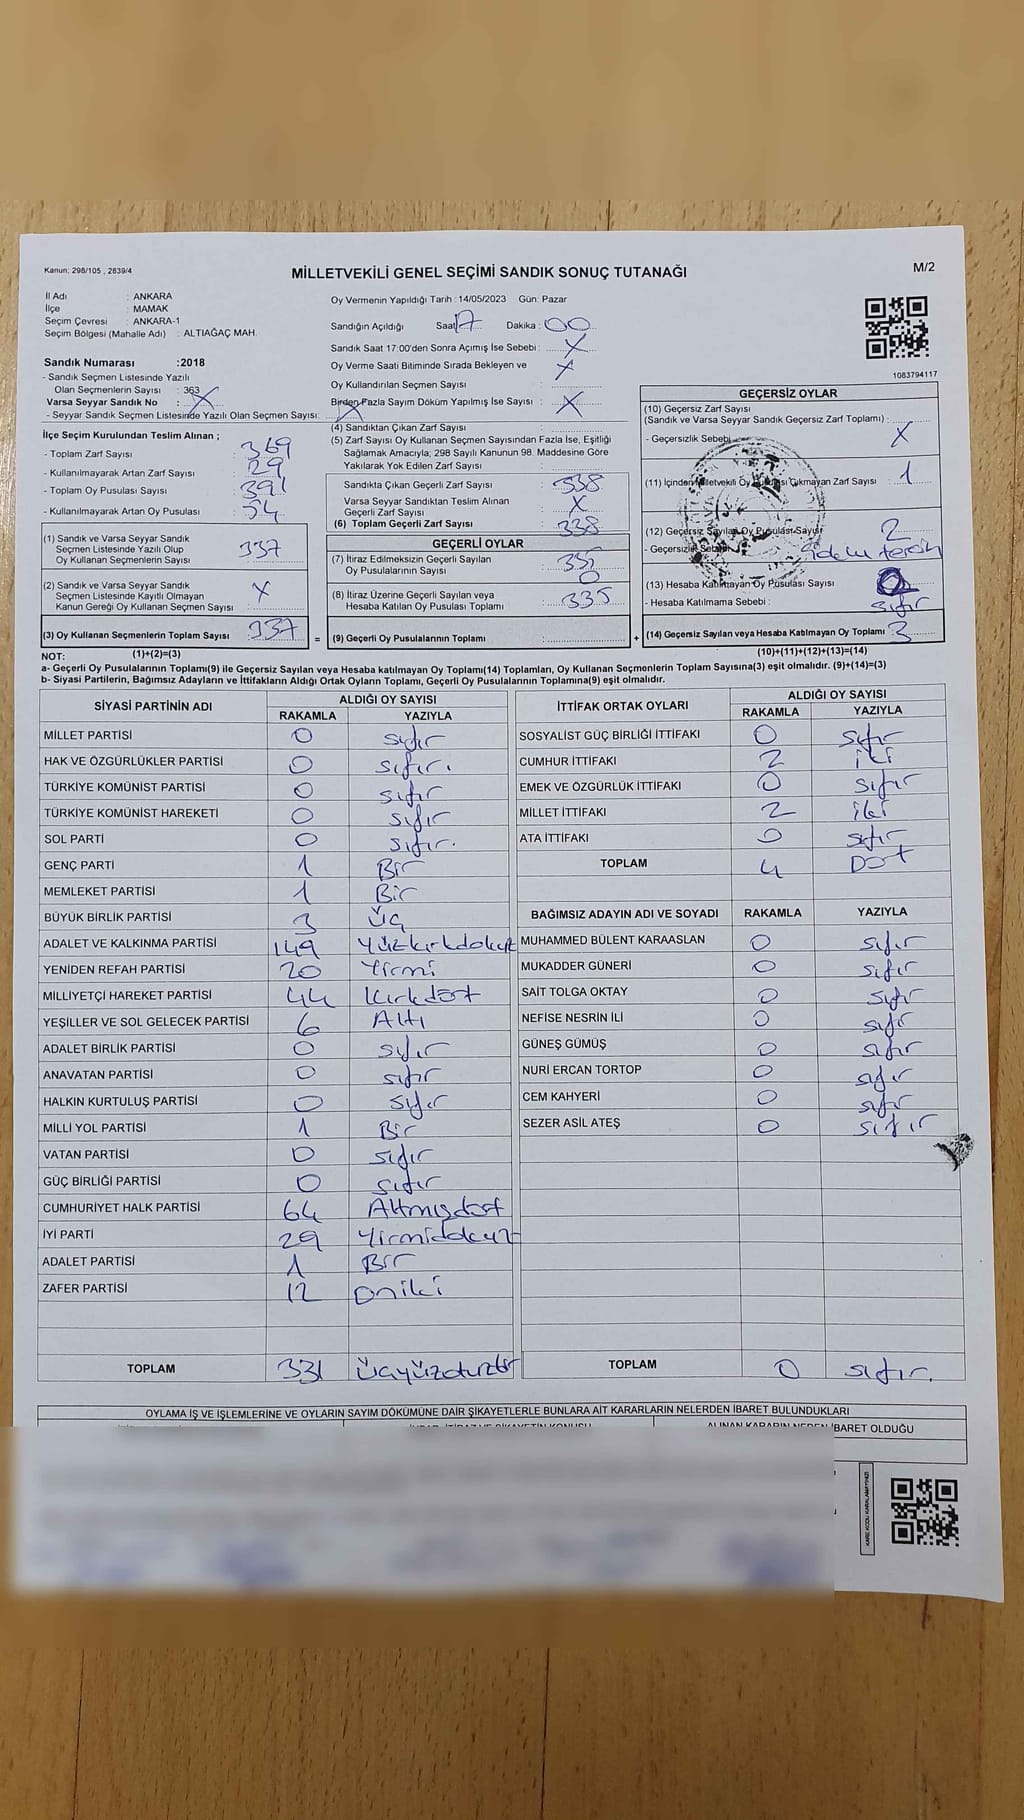 Kanun; 298/105 , 2839/4
MİLLETVEKİLİ GENEL SEÇİMİ SANDIK SONUÇ TUTANAĞI
M/2
İl Adı : ANKARA
İlçe : MAMAK
Seçim Çevresi : ANKARA-1
Seçim Bölgesi (Mahalle Adı) : ALTIAĞAÇ MAH.
Oy Vermenin Yapıldığı Tarih : 14/05/2023 Gün: Pazar
Sandığın Açıldığı Saat 17 Dakika : 00
Sandık Saat 17:00'den Sonra Açımış İse Sebebi : X
Oy Verme Saati Bitiminde Sırada Bekleyen ve X
Oy Kullandırılan Seçmen Sayısı :
Birden Fazla Sayım Döküm Yapılmış İse Sayısı : X
1083794117
Sandık Numarası :2018
- Sandık Seçmen Listesinde Yazılı
Olan Seçmenlerin Sayısı : 363
Varsa Seyyar Sandık No : X
- Seyyar Sandık Seçmen Listesinde Yazılı Olan Seçmen Sayısı: X
İlçe Seçim Kurulundan Teslim Alınan ;
- Toplam Zarf Sayısı : 369
- Kullanılmayarak Artan Zarf Sayısı : 29
- Toplam Oy Pusulası Sayısı : 391
- Kullanılmayarak Artan Oy Pusulası : 54
(1) Sandık ve Varsa Seyyar Sandık
Seçmen Listesinde Yazılı Olup
Oy Kullanan Seçmenlerin Sayısı 337
(2) Sandık ve Varsa Seyyar Sandık
Seçmen Listesinde Kayıtlı Olmayan
Kanun Gereği Oy Kullanan Seçmen Sayısı X
(3) Oy Kullanan Seçmenlerin Toplam Sayısı 337
(4) Sandıktan Çıkan Zarf Sayısı :
(5) Zarf Sayısı Oy Kullanan Seçmen Sayısından Fazla İse, Eşitliği
Sağlamak Amacıyla; 298 Sayılı Kanunun 98. Maddesine Göre
Yakılarak Yok Edilen Zarf Sayısı :
Sandıkta Çıkan Geçerli Zarf Sayısı : 338
Varsa Seyyar Sandıktan Teslim Alınan
Geçerli Zarf Sayısı : X
(6) Toplam Geçerli Zarf Sayısı : 338
GEÇERLİ OYLAR
(7) İtiraz Edilmeksizin Geçerli Sayılan
Oy Pusulalarının Sayısı : 335
0
(8) İtiraz Üzerine Geçerli Sayılan veya
Hesaba Katılan Oy Pusulası Toplamı 335
= (9) Geçerli Oy Pusulalarının Toplamı :
GEÇERSİZ OYLAR
(10) Geçersiz Zarf Sayısı
(Sandık ve Varsa Seyyar Sandık Geçersiz Zarf Toplamı) :
- Geçersizlik Sebebi X
(11) İçinden Milletvekili Oy Pusulası Çıkmayan Zarf Sayısı : 1
(12) Geçersiz Sayılan Oy Pusulası Sayısı 2
- Geçersizlik Sebebi
(13) Hesaba Katılmayan Oy Pusulası Sayısı 0
- Hesaba Katılmama Sebebi : sıfır
+ (14) Geçersiz Sayılan veya Hesaba Katılmayan Oy Toplamı 3
NOT: (1)+(2)=(3)
(10)+(11)+(12)+(13)=(14)
a- Geçerli Oy Pusulalarının Toplamı(9) ile Geçersiz Sayılan veya Hesaba katılmayan Oy Toplamı(14) Toplamları, Oy Kullanan Seçmenlerin Toplam Sayısına(3) eşit olmalıdır. (9)+(14)=(3)
b- Siyasi Partilerin, Bağımsız Adayların ve İttifakların Aldığı Ortak Oyların Toplamı, Geçerli Oy Pusulalarının Toplamına(9) eşit olmalıdır.
SİYASİ PARTİNİN ADI ALDIĞI OY SAYISI
RAKAMLA YAZIYLA
MİLLET PARTİSİ 0 sıfır
HAK VE ÖZGÜRLÜKLER PARTİSİ 0 sıfır.
TÜRKİYE KOMÜNİST PARTİSİ 0 sıfır
TÜRKİYE KOMÜNİST HAREKETİ 0 sıfır
SOL PARTİ 0 sıfır.
GENÇ PARTİ 1 Bir
MEMLEKET PARTİSİ 1 Bir
BÜYÜK BİRLİK PARTİSİ 3 Üç
ADALET VE KALKINMA PARTİSİ 149 Yüzkırkdokuz
YENİDEN REFAH PARTİSİ 20 Yirmi
MİLLİYETÇİ HAREKET PARTİSİ 44 Kırkdört
YEŞİLLER VE SOL GELECEK PARTİSİ 6 Altı
ADALET BİRLİK PARTİSİ 0 sıfır
ANAVATAN PARTİSİ 0 sıfır
HALKIN KURTULUŞ PARTİSİ 0 sıfır
MİLLİ YOL PARTİSİ 1 Bir
VATAN PARTİSİ 0 sıfır
GÜÇ BİRLİĞİ PARTİSİ 0 sıfır
CUMHURİYET HALK PARTİSİ 64 Altmışdört
İYİ PARTİ 29 Yirmidokuz
ADALET PARTİSİ 1 Bir
ZAFER PARTİSİ 12 Oniki
TOPLAM 331 Üçyüzotuzbir
İTTİFAK ORTAK OYLARI ALDIĞI OY SAYISI
RAKAMLA YAZIYLA
SOSYALİST GÜÇ BİRLİĞİ İTTİFAKI 0 sıfır
CUMHUR İTTİFAKI 2 iki
EMEK VE ÖZGÜRLÜK İTTİFAKI 0 sıfır
MİLLET İTTİFAKI 2 iki
ATA İTTİFAKI 0 sıfır
TOPLAM 4 Dört
BAĞIMSIZ ADAYIN ADI VE SOYADI RAKAMLA YAZIYLA
MUHAMMED BÜLENT KARAASLAN 0 sıfır
MUKADDER GÜNERİ 0 sıfır
SAİT TOLGA OKTAY 0 sıfır
NEFİSE NESRİN İLİ 0 sıfır
GÜNEŞ GÜMÜŞ 0 sıfır
NURİ ERCAN TORTOP 0 sıfır
CEM KAHYERİ 0 sıfır
SEZER ASİL ATEŞ 0 sıfır
TOPLAM 0 sıfır.
OYLAMA İŞ VE İŞLEMLERİNE VE OYLARIN SAYIM DÖKÜMÜNE DAİR ŞİKAYETLERLE BUNLARA AİT KARARLARIN NELERDEN İBARET BULUNDUKLARI
ALINAN KARARIN NEDEN İBARET OLDUĞU